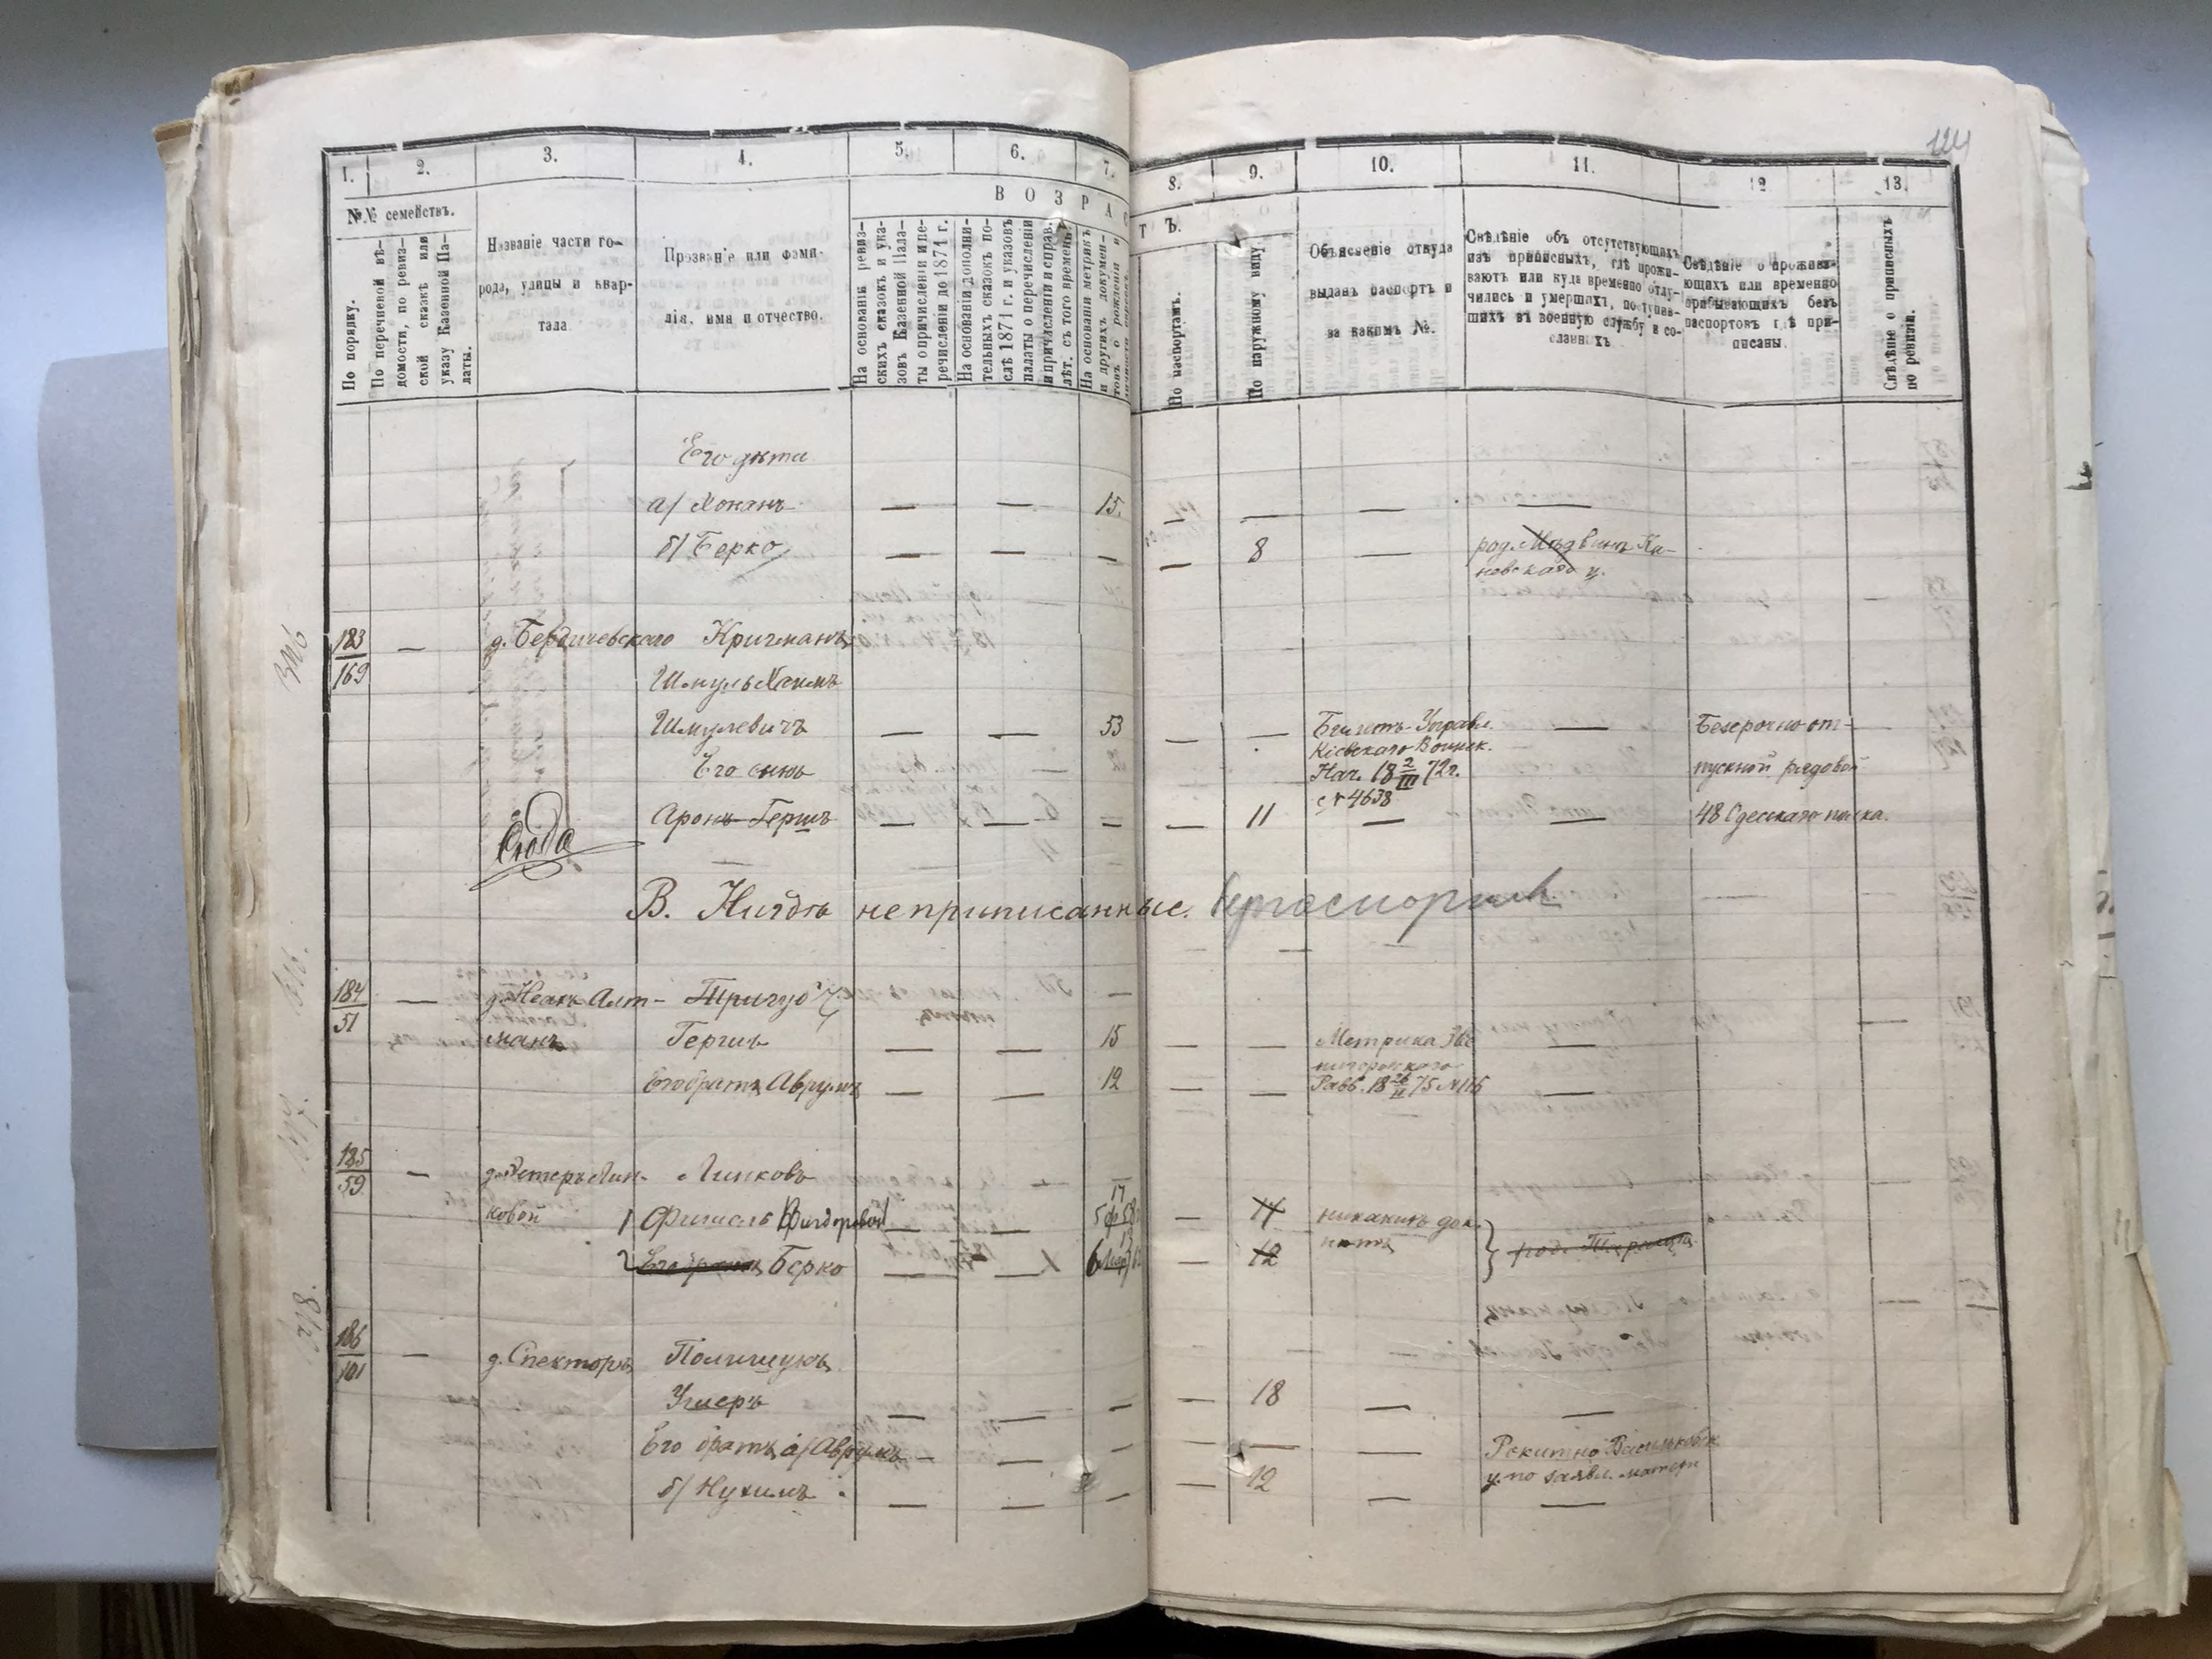 124
1. 2. 3. 4. 5. 6. 7. 8. 9. 10. 11. 12 13.
№№ семействъ.
По порядку.
По перечневой вѣ-
домости, по ревиз-
ской сказкѣ или
указу Казенной Па-
латы.
Названіе части го-
рода, улицы и квар-
тала
Прозваніе или фами-
лія, имя и отчество.
ВОЗРАСТЪ.
На основаніи ревиз-
скихъ сказокъ и ука-
зовъ Казенной Пала-
ты о причисленіи и пе-
речисленіи до 1871 г.
На основаніи дополни-
тельныхъ сказокъ по-
слѣ 1871 г. и указовъ
палаты о перечисленіи
и причисленіи и справ.
лѣт. съ того времени.
На основаніи метрикъ
и другихъ докумен-
товъ о рожденіи и
По паспортамъ.
По наружному виду
Объясненіе откуда
выданъ паспортъ и
за какимъ №.
Свѣдѣніе объ отсутствующихъ
изъ приписныхъ, гдѣ прожи-
ваютъ или куда временно отлу-
чились и умершихъ, поступив-
шихъ въ военную службу и со-
сланныхъ
Свѣдѣніе о прожива-
ющихъ или временно
пребывающихъ безъ
паспортовъ гдѣ при-
писаны.
Свѣдѣніе о приписныхъ
по ревизіи.
Его дѣти
а/ Хонанъ — — 15. — — — —
б/ Берко — — — — 8 — род. Мѣдвинъ Ка-
невскаго у.
183/169 — д. Бердичевскаго Кричманъ
Шмуль Хаимъ
Шмулевичъ — — 53 — Билетъ Управл. — Безсрочно-от-
Кіевскаго Воинск.
Его сынъ Нач. 18 2/III 72 г. пускной рядовой
№ 4638
Аронъ-Гершъ — — — — 11 — — 48 Одесскаго полка.
Сюда
В. Нигдѣ неприписанные.
184/51 — д. Исаакъ Алт- Тригуб
манъ Гершъ — — 15 — — Метрика Зве- —
нигородскаго
Его братъ Аврумъ — — 12 — — Равв. 18 75 № 116
185/59 — д. Эстеръ Лин- Линковъ
ковой 1 Фишель — — 17 — никакихъ док.
2 Его братъ Берко — — — 12 нѣтъ род. Тараща
186/101 — д. Спекторъ Полищукъ
Ушеръ — — — — 18 — —
Его братъ а/ Аврумъ — — — — — Рокитно Васильковск
у. по заявл. матери
б/ Нухимъ — — — — 12 — —